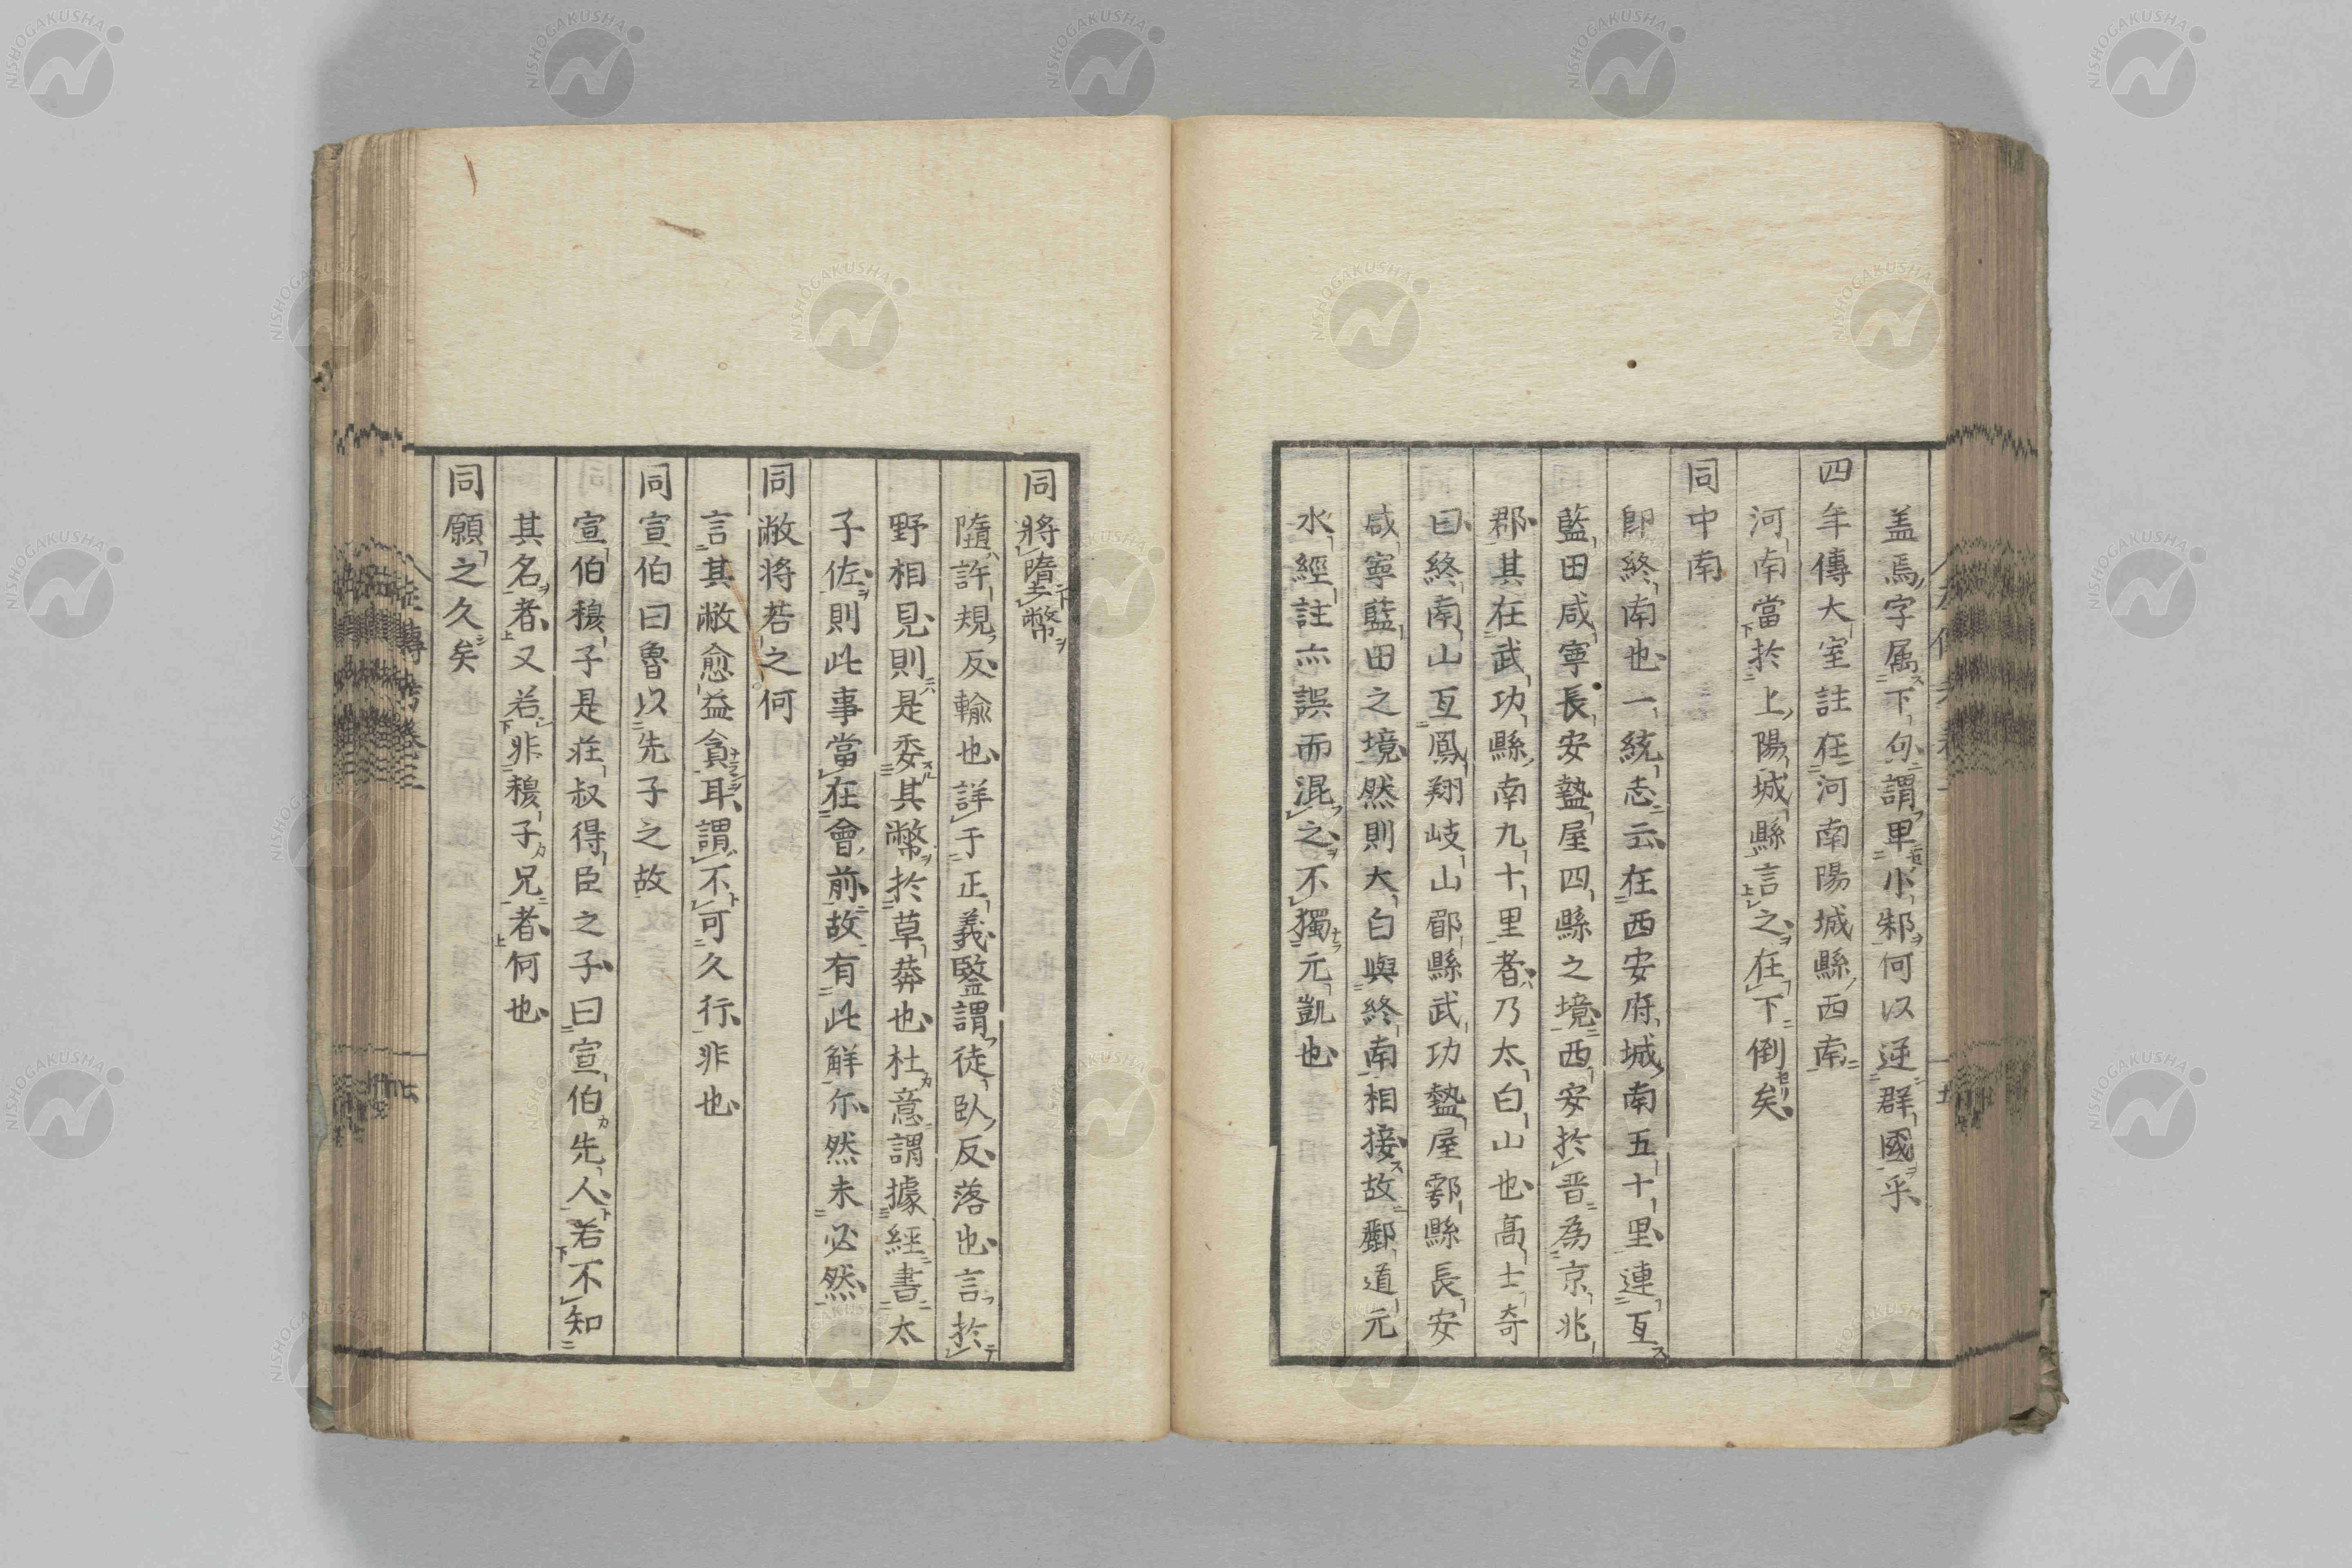 盖焉字属下句謂卑小邾何以逆群國乎
四年傳大室註在河南陽城縣西南
河南當於上陽城縣言之在下倒矣
同中南
即終南也一統志云在西安府城南五十里連亙
藍田咸寧長安盩屋四縣之境西安於晋為京兆
郡其在武功縣南九十里者乃太白山也高士奇
曰終南山亙鳳翔岐山郿縣武功盩屋鄠縣長安
咸寧藍田之境然則大白與終南相接故酈道元
水經註亦誤而混之不獨元凱也
同將隋幣
隋許規反輸也詳于正義鑒謂徒臥反落也言於
野相見則是委其幣於草莽也杜意謂據經書太
子佐則此事當在會前故有此解尓然未必然
同敝将若之何
言其敝愈益貪耳謂不可久行非也
同宣伯曰魯以先子之故
宣伯穆子是莊叔得臣之子曰宣伯先人若不知
其名者又若非穆子兄者何也
同願之久矣
左傳考卷三
NISHOGAKUSHA